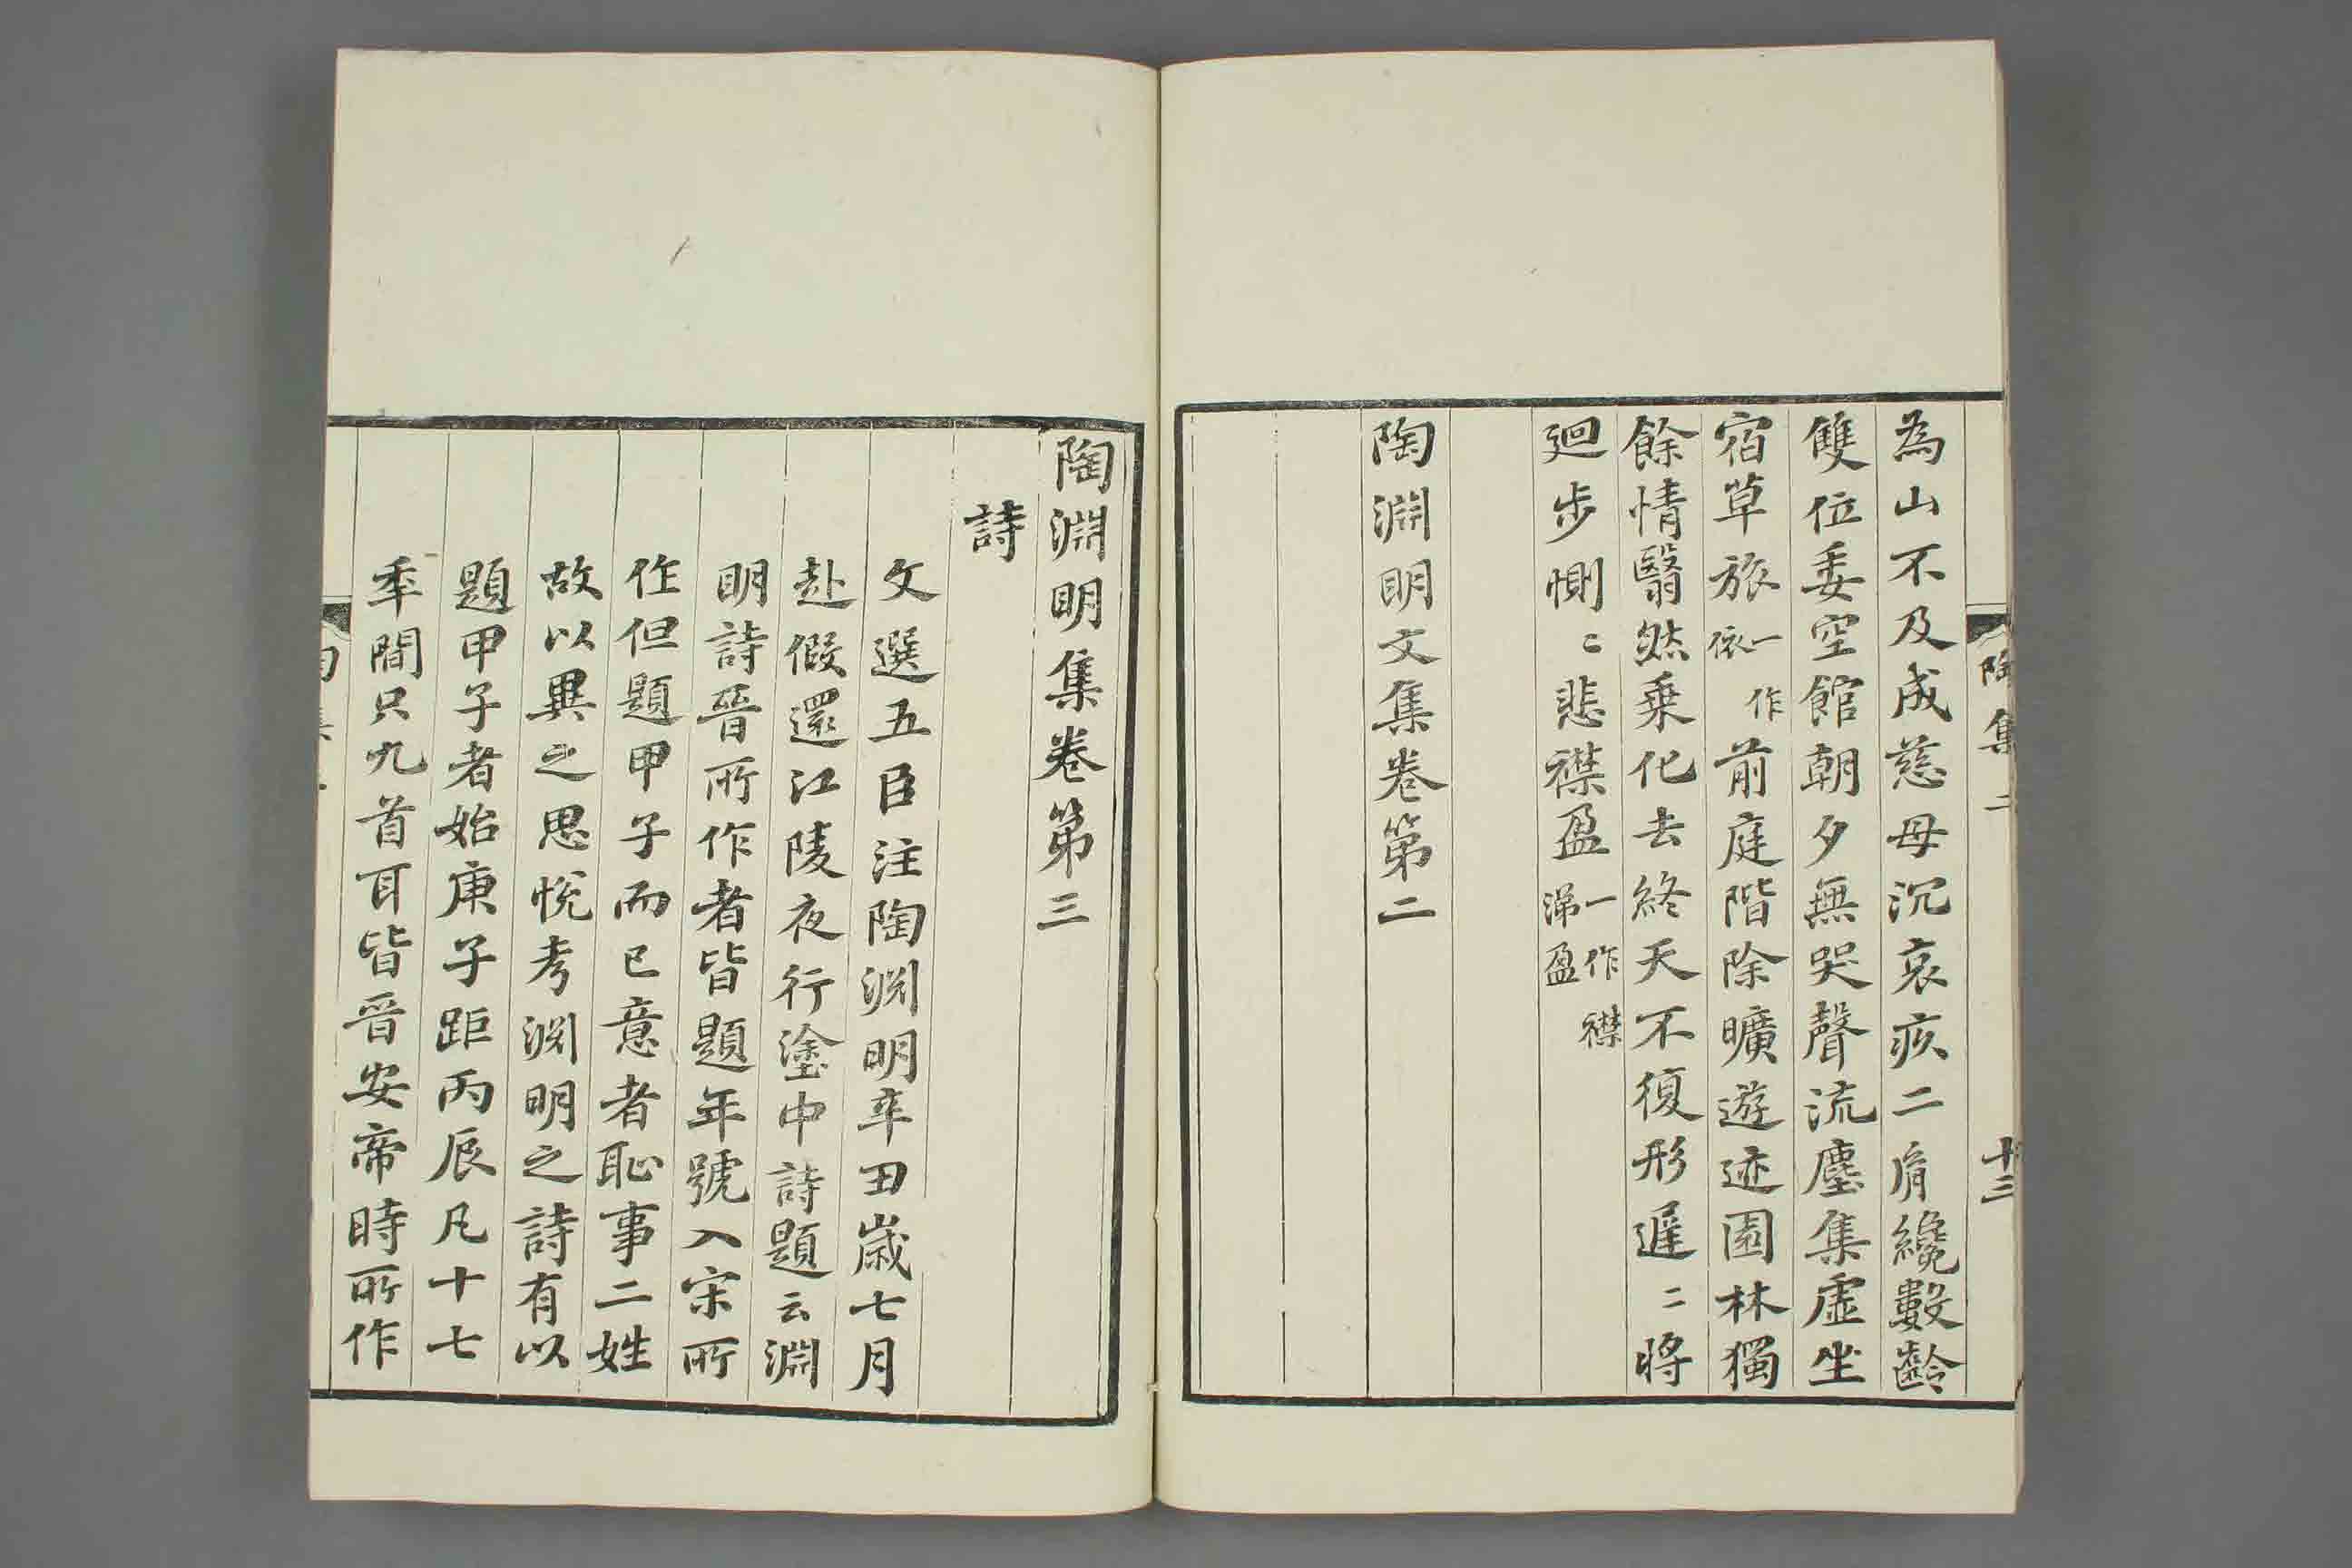 陶集二 十三
為山不及成慈母沉哀疚二胤纔數齡
雙位委空館朝夕無哭聲流塵集虛坐
宿草旅一作依前庭階除曠遊迹園林獨
餘情翳然乗化去終天不復形遲二將
廻步惻二悲襟盈一作襟涕盈
陶淵明文集卷第二
陶淵明集卷第三
詩
文選五臣注陶渊明辛丑歲七月
赴假還江陵夜行塗中詩題云淵
明詩晉所作者皆題年號入宋所
作但題甲子而已意者恥事二姓
故以異之思悅考渊明之詩有以
題甲子者始庚子距丙辰凡十七
年間只九首耳皆晉安帝時所作